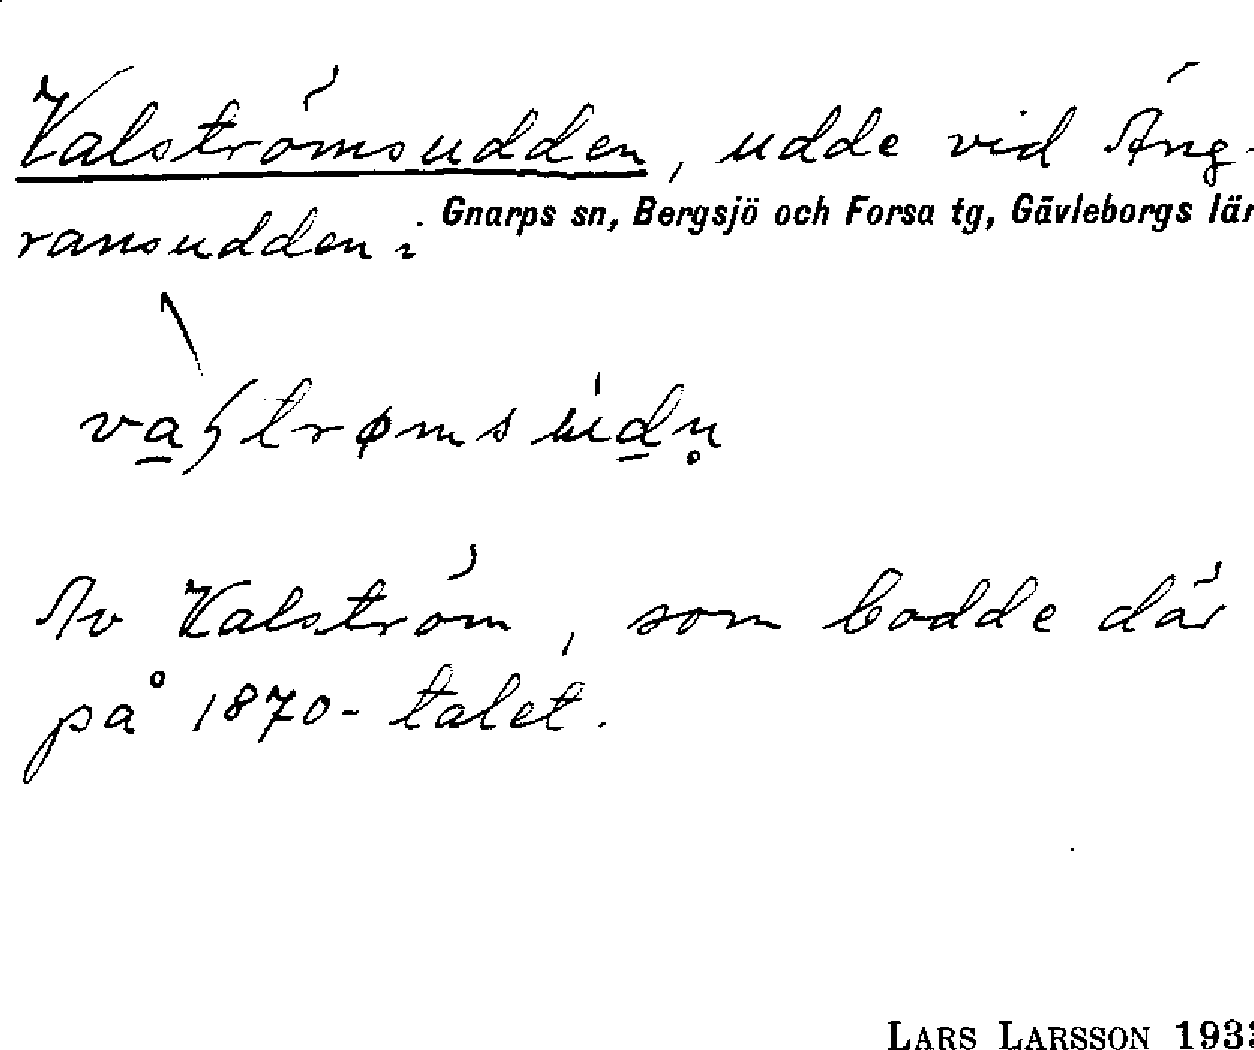 Valströmsudden, udde vid Äng-
ransudden i Gnarps sn, Bergsjö och Forsa tg, Gävleborgs län
Av Valström, som bodde där
på 1870-talet.
LARS LARSSON 1933